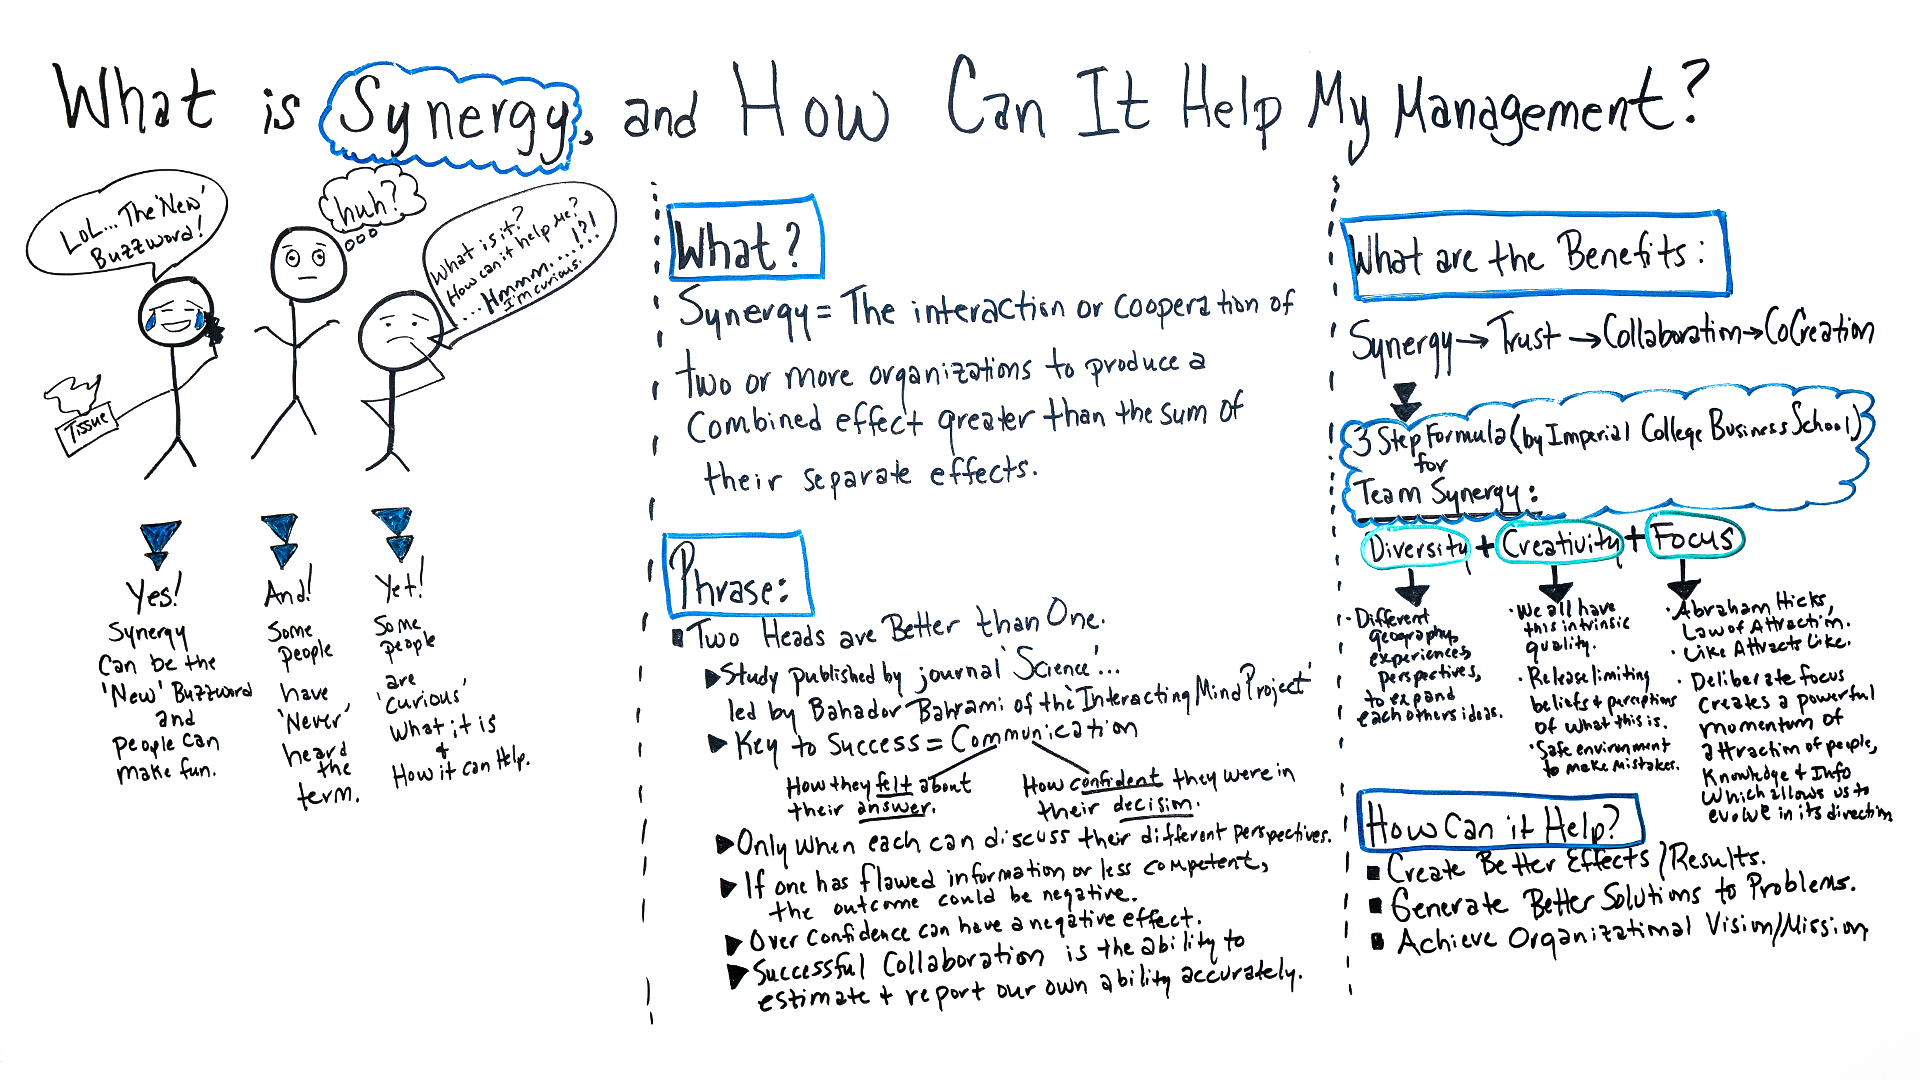 What is Synergy, and How Can It Help My Management?
LoL... The 'New'
Buzzword!
huh?
What is it?
How can it help Me?
...Hmmm.....!?!
I'm curious.
Tissue
Yes!
Synergy
Can be the
'New' Buzzword
and
people can
make fun.
And!
Some
people
have
'Never'
heard
the
term.
Yet!
Some
people
are
'Curious'
What it is
+
How it can Help.
What?
Synergy = The interaction or cooperation of
two or more organizations to produce a
Combined effect greater than the sum of
their separate effects.
Phrase:
Two Heads are Better than One.
Study published by journal 'Science'...
led by Bahador Bahrami of the 'Interacting Mind Project'
Key to Success = Communication
How they felt about
their answer.
How confident they were in
their decision.
Only when each can discuss their different perspectives.
If one has flawed information or less competent,
the outcome could be negative.
Over Confidence can have a negative effect.
Successful Collaboration is the ability to
estimate + report our own ability accurately.
What are the Benefits:
Synergy → Trust → Collaboration → CoCreation
3 Step Formula (by Imperial College Business School)
for
Team Synergy:
Diversity + Creativity + Focus
· Different
geography,
experiences,
perspectives,
to expand
each others ideas.
· We all have
this intrinsic
quality.
· Release limiting
beliefs + perceptions
of what this is.
· Safe environment
to make mistakes.
· Abraham Hicks,
Law of Attraction.
· Like Attracts Like.
· Deliberate focus
creates a powerful
momentum of
attraction of people,
Knowledge + Info
Which allows us to
evolve in its direction
How Can it Help?
Create Better Effects/Results.
Generate Better Solutions to Problems.
Achieve Organizational Vision/Mission